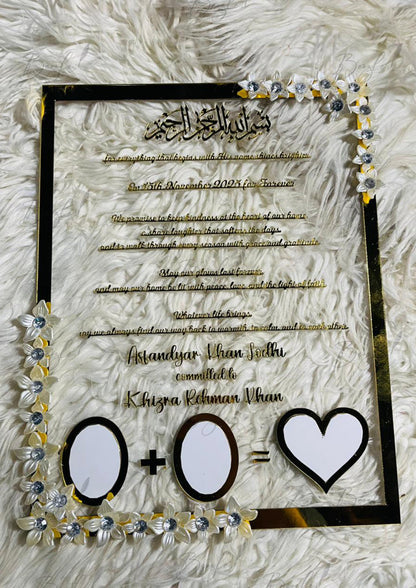 بسم الله الرحمن الرحيم
for everything that begins with His name, shines brighter.
On 15th November 2025 for Forever
We promise to keep kindness at the heart of our home
to share laughter that softens the days,
and to walk through every season with grace and gratitude.
May our glows last forever,
and may our home be lit with peace, love, and the light of
Whatever life brings,
may we always find our way back to warmth, to calm, and to each other.
Asfandyar Khan Lodhi
committed to
Khizra Rehman Khan
+ =